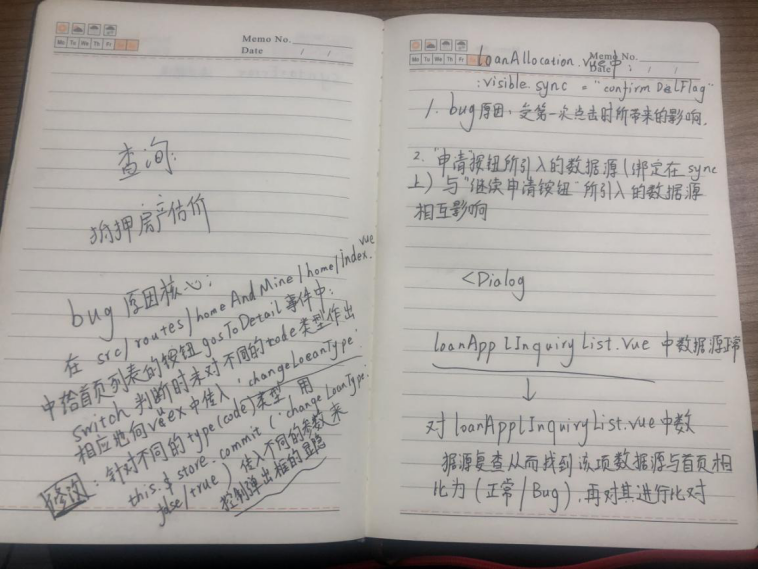 Memo No.
Date / /
Mo Tu We Th Fr
查询:
抵押房产估价
bug 原因核心:
在 src/routes/homeAndMine/home/index.vue
中给首页列表的按钮 gosToDetail 事件中:
switch 判断时未对不同的code类型作出
相应地向vuex中传入'changeLoeanType'
修改: 针对不同的type(code)类型 用
this.$store.commit('changeLoanType'
false/true) 传入不同的参数来
控制弹出框的显隐
Memo No.
Date / /
loanAllocation.vue中:
:visible.sync = "confirmDelFlag"
1. bug原因, 受第一次点击时所带来的影响.
2. "申请"按钮所引入的数据源(绑定在sync
上) 与"继续申请按钮"所引入的数据源
相互影响
<Dialog
loanApplInquiryList.vue 中数据源正常
↓
对 loanApplInquiryList.vue中数
据源复查从而找到该项数据源与首页相
比为(正常/Bug), 再对其进行比对